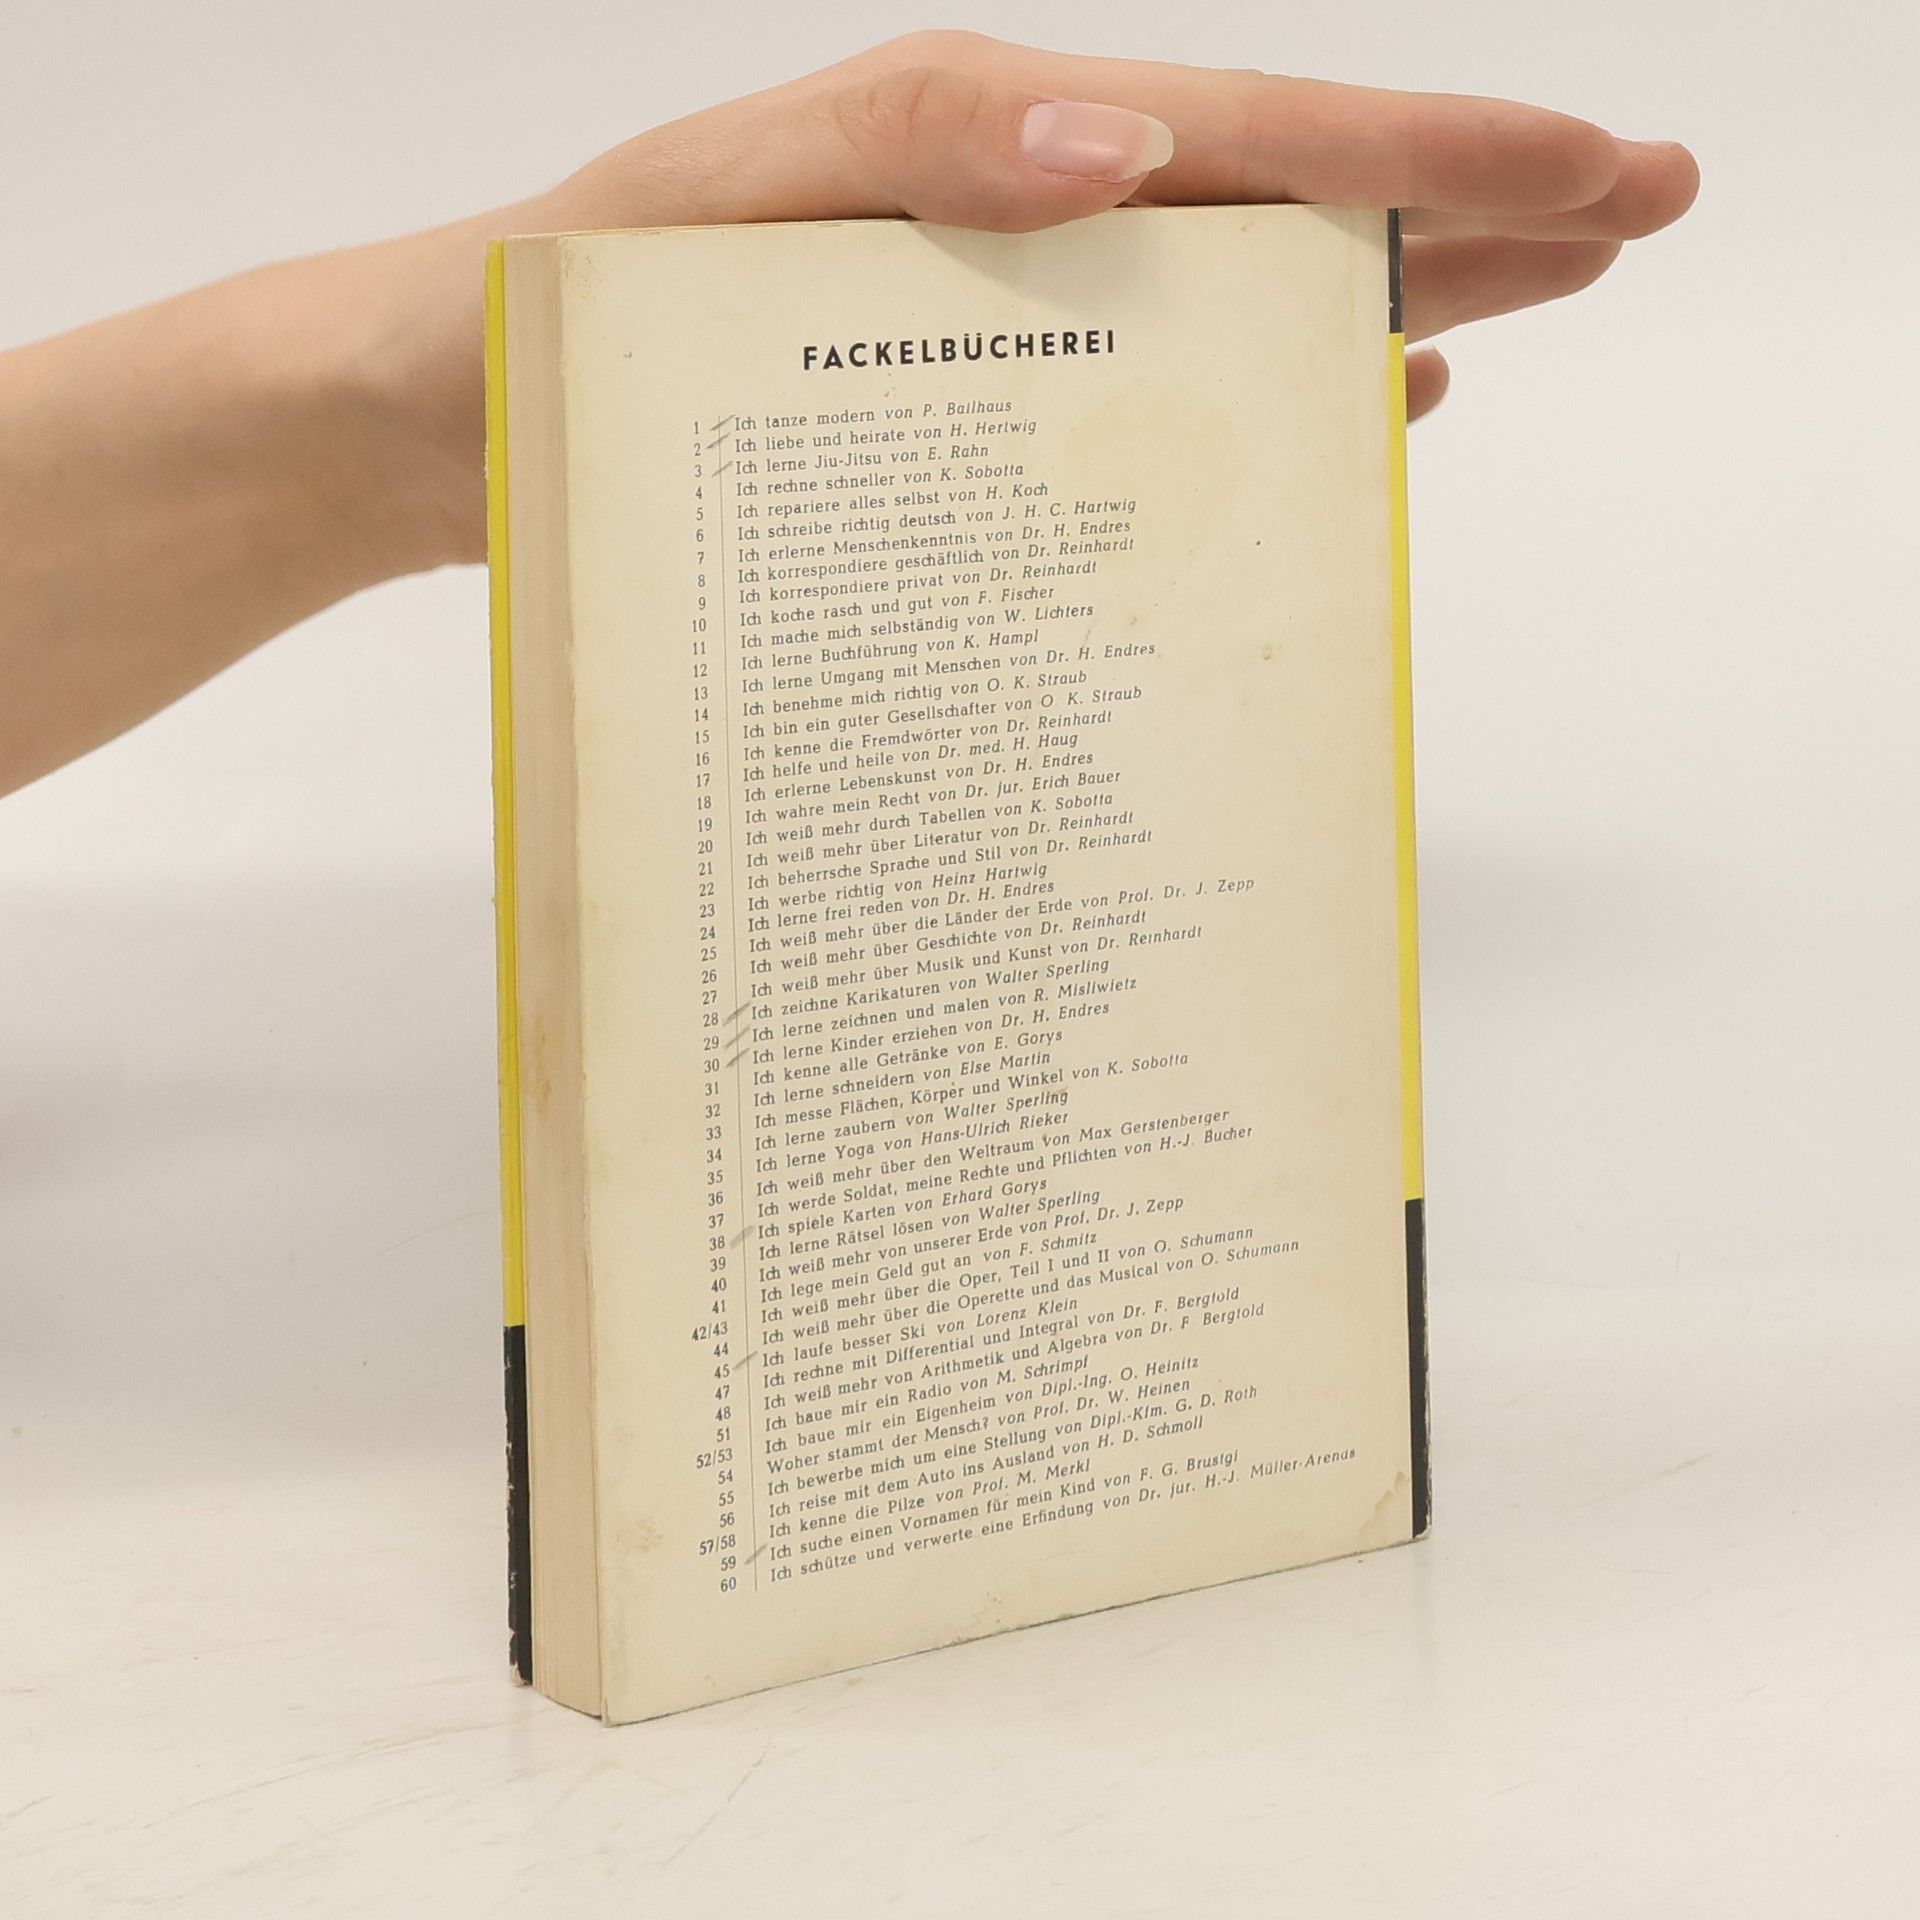 FACKELBÜCHEREI
1 Ich tanze modern von P. Ballhaus
2 Ich liebe und heirate von H. Hertwig
3 Ich lerne Jiu-Jitsu von E. Rahn
4 Ich rechne schneller von K. Sobotta
5 Ich repariere alles selbst von H. Koch
6 Ich schreibe richtig deutsch von J. H. C. Hartwig
7 Ich erlerne Menschenkenntnis von Dr. H. Endres
8 Ich korrespondiere geschäftlich von Dr. Reinhardt
9 Ich korrespondiere privat von Dr. Reinhardt
10 Ich koche rasch und gut von F. Fischer
11 Ich mache mich selbständig von W. Lichters
12 Ich lerne Buchführung von K. Hampl
13 Ich lerne Umgang mit Menschen von Dr. H. Endres
14 Ich benehme mich richtig von O. K. Straub
15 Ich bin ein guter Gesellschafter von O. K. Straub
16 Ich kenne die Fremdwörter von Dr. Reinhardt
17 Ich helfe und heile von Dr. med. H. Haug
18 Ich erlerne Lebenskunst von Dr. H. Endres
19 Ich wahre mein Recht von Dr. jur. Erich Bauer
20 Ich weiß mehr durch Tabellen von K. Sobotta
21 Ich weiß mehr über Literatur von Dr. Reinhardt
22 Ich beherrsche Sprache und Stil von Dr. Reinhardt
23 Ich werbe richtig von Heinz Hartwig
24 Ich lerne frei reden von Dr. H. Endres
25 Ich weiß mehr über die Länder der Erde von Prof. Dr. J. Zepp
26 Ich weiß mehr über Geschichte von Dr. Reinhardt
27 Ich weiß mehr über Musik und Kunst von Dr. Reinhardt
28 Ich zeichne Karikaturen von Walter Sperling
29 Ich lerne zeichnen und malen von R. Misliwietz
30 Ich lerne Kinder erziehen von Dr. H. Endres
31 Ich kenne alle Getränke von E. Gorys
32 Ich lerne schneidern von Else Martin
33 Ich messe Flächen, Körper und Winkel von K. Sobotta
34 Ich lerne zaubern von Walter Sperling
35 Ich lerne Yoga von Hans-Ulrich Rieker
36 Ich weiß mehr über den Weltraum von Max Gerstenberger
37 Ich werde Soldat, meine Rechte und Pflichten von H.-J. Bucher
38 Ich spiele Karten von Erhard Gorys
39 Ich lerne Rätsel lösen von Walter Sperling
40 Ich weiß mehr von unserer Erde von Prof. Dr. J. Zepp
41 Ich lege mein Geld gut an von F. Schmitz
42/43 Ich weiß mehr über die Oper, Teil I und II von O. Schumann
44 Ich weiß mehr über die Operette und das Musical von O. Schumann
45 Ich laufe besser Ski von Lorenz Klein
47 Ich rechne mit Differential und Integral von Dr. F. Bergtold
48 Ich weiß mehr von Arithmetik und Algebra von Dr. F. Bergtold
51 Ich baue mir ein Radio von M. Schrimpf
52/53 Ich baue mir ein Eigenheim von Dipl.-Ing. O. Heinitz
54 Woher stammt der Mensch? von Prof. Dr. W. Heinen
55 Ich bewerbe mich um eine Stellung von Dipl.-Kfm. G. D. Roth
56 Ich reise mit dem Auto ins Ausland von H. D. Schmoll
57/58 Ich kenne die Pilze von Prof. M. Merkl
59 Ich suche einen Vornamen für mein Kind von F. G. Brustgi
60 Ich schütze und verwerte eine Erfindung von Dr. jur. H.-J. Müller-Arends